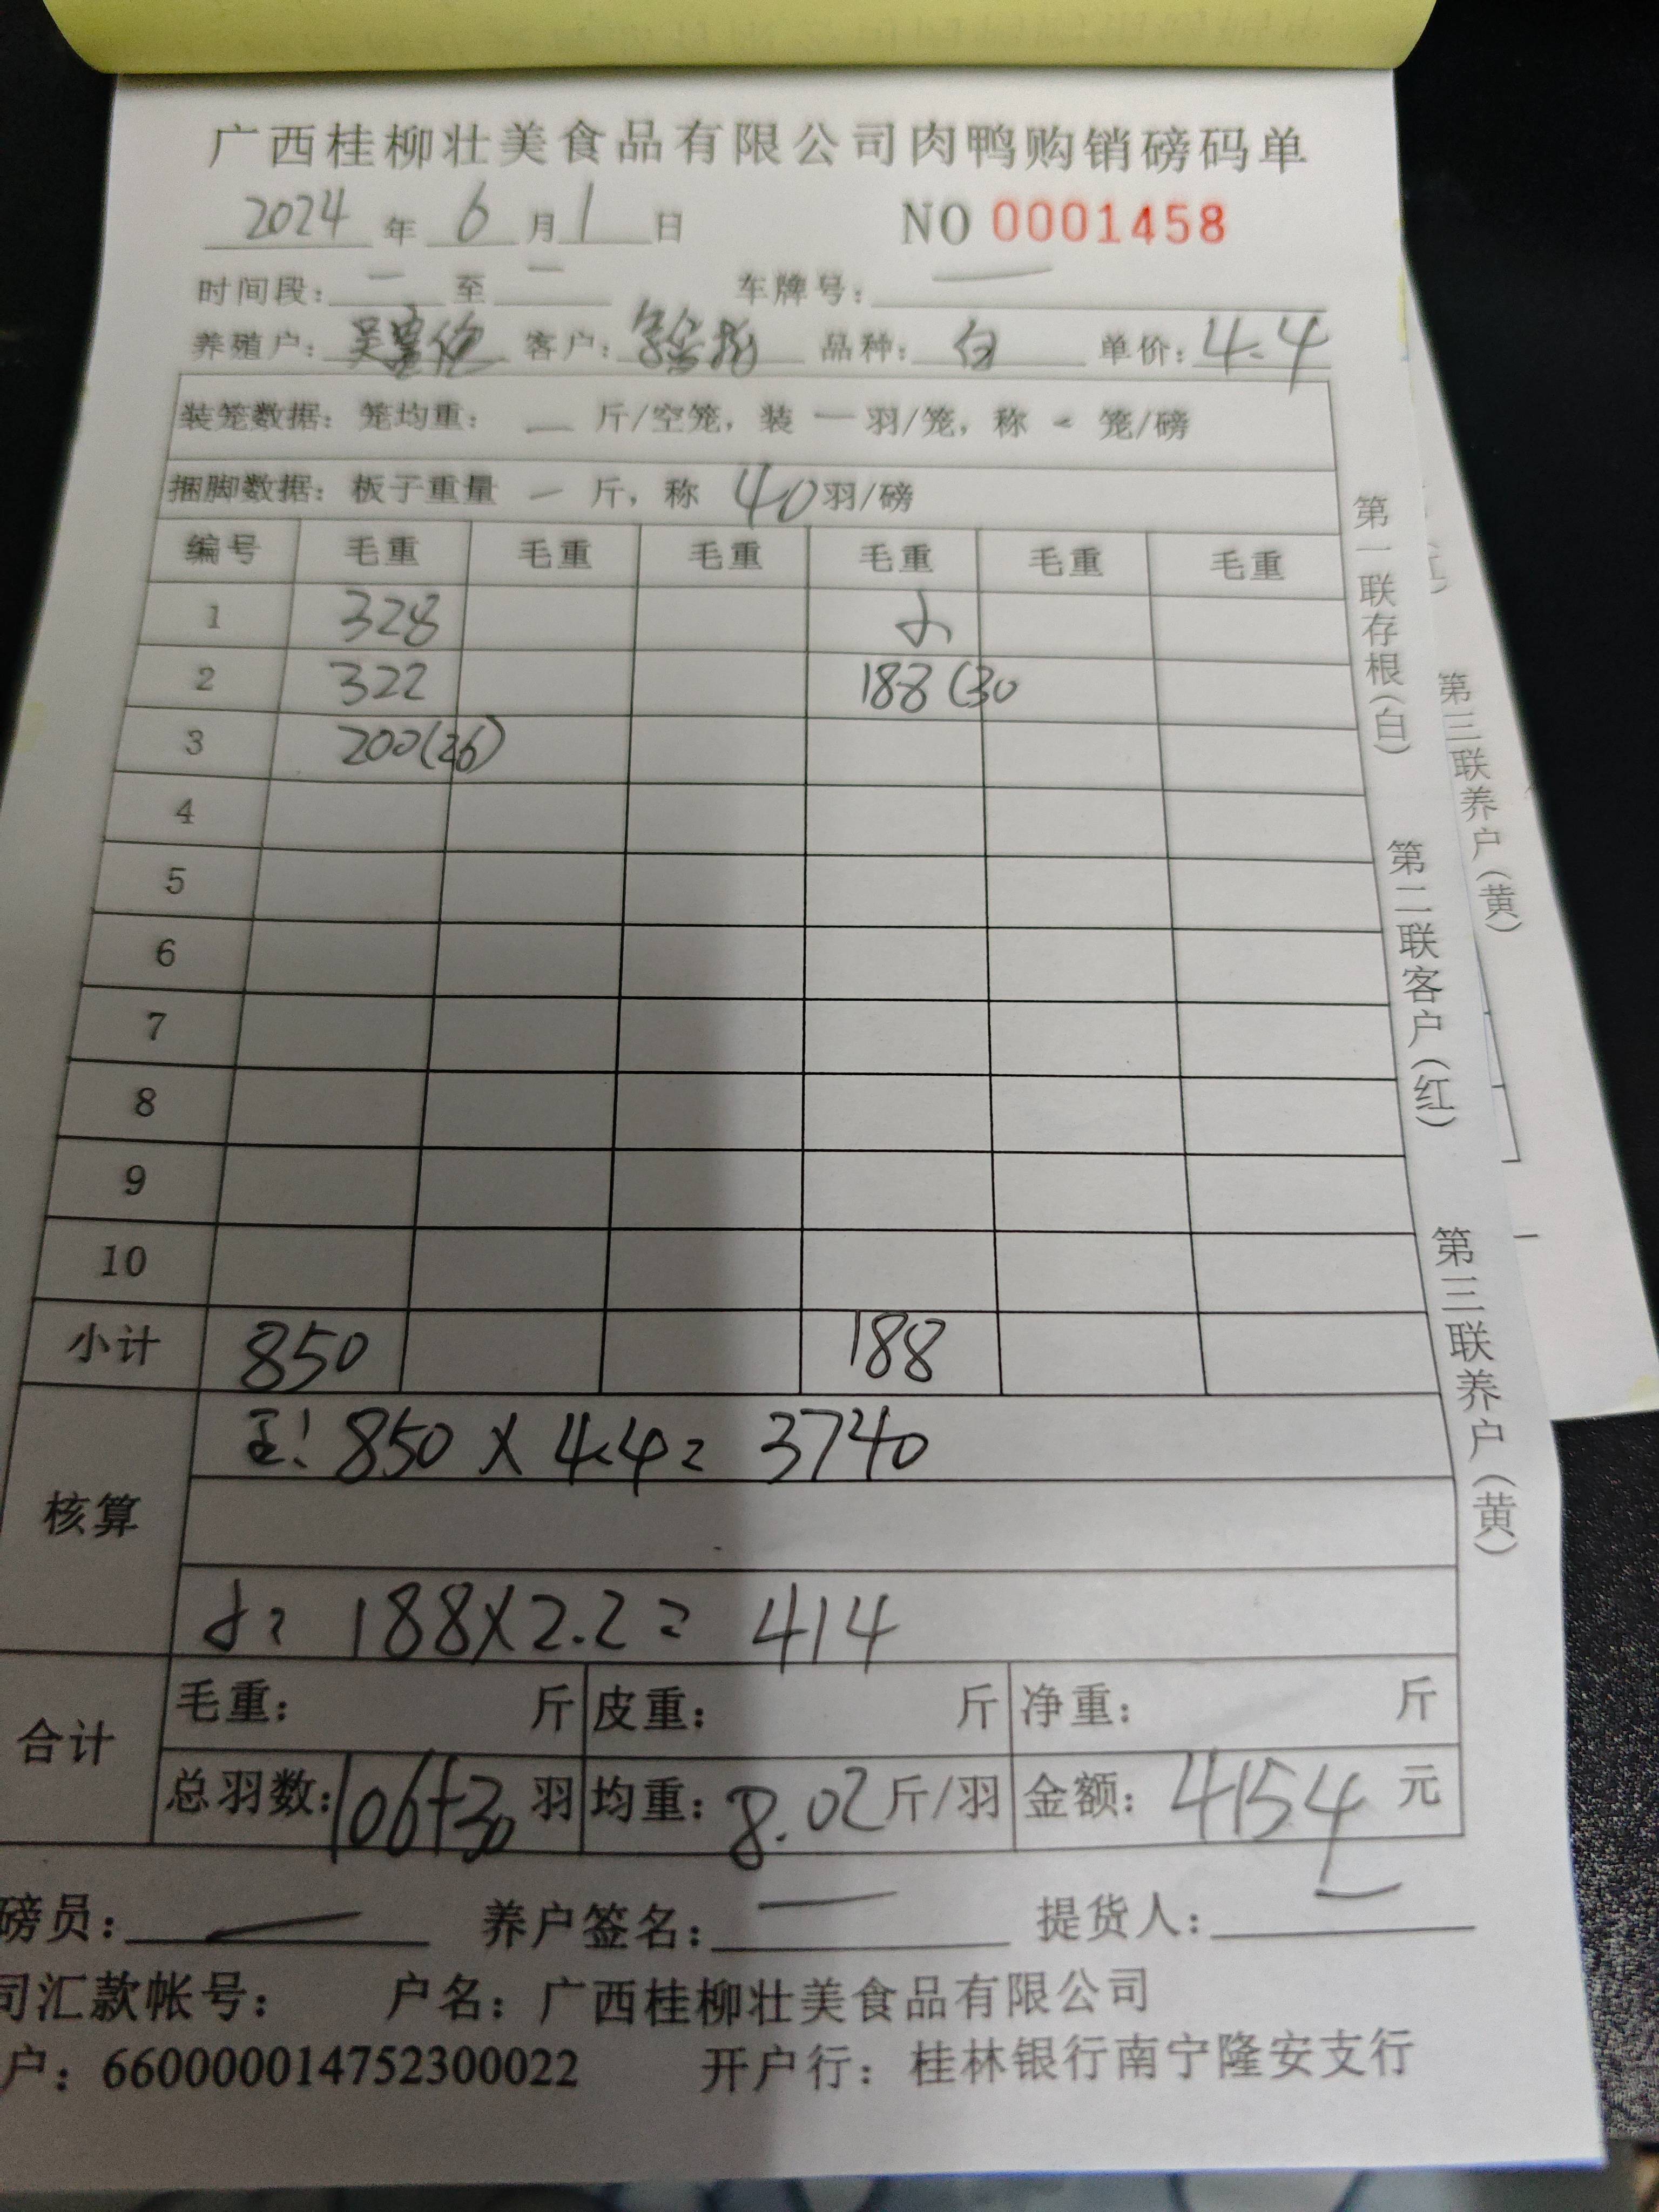 广西桂柳壮美食品有限公司肉鸭购销磅码单
2024 年 6 月 1 日 NO 0001458
时间段： — 至 — 车牌号： —
养殖户：吴 客户： 品种：白 单价：4.4
装笼数据：笼均重： — 斤/空笼，装 — 羽/笼，称 - 笼/磅
捆脚数据：板子重量 — 斤，称 40 羽/磅
编号 毛重 毛重 毛重 毛重 毛重 毛重
1 328
2 322 188 (30
3 200(26)
4
5
6
7
8
9
10
小计 850 188
核算
850 X 4.4= 3740
188X2.2= 414
合计
毛重： 斤 皮重： 斤 净重： 斤
总羽数：106+30 羽 均重：8.02 斤/羽 金额：4154 元
磅员： — 养户签名： — 提货人： —
司汇款帐号： 户名：广西桂柳壮美食品有限公司
户：660000014752300022 开户行：桂林银行南宁隆安支行
第一联存根（白） 第二联客户（红） 第三联养户（黄）
第三联养户（黄）